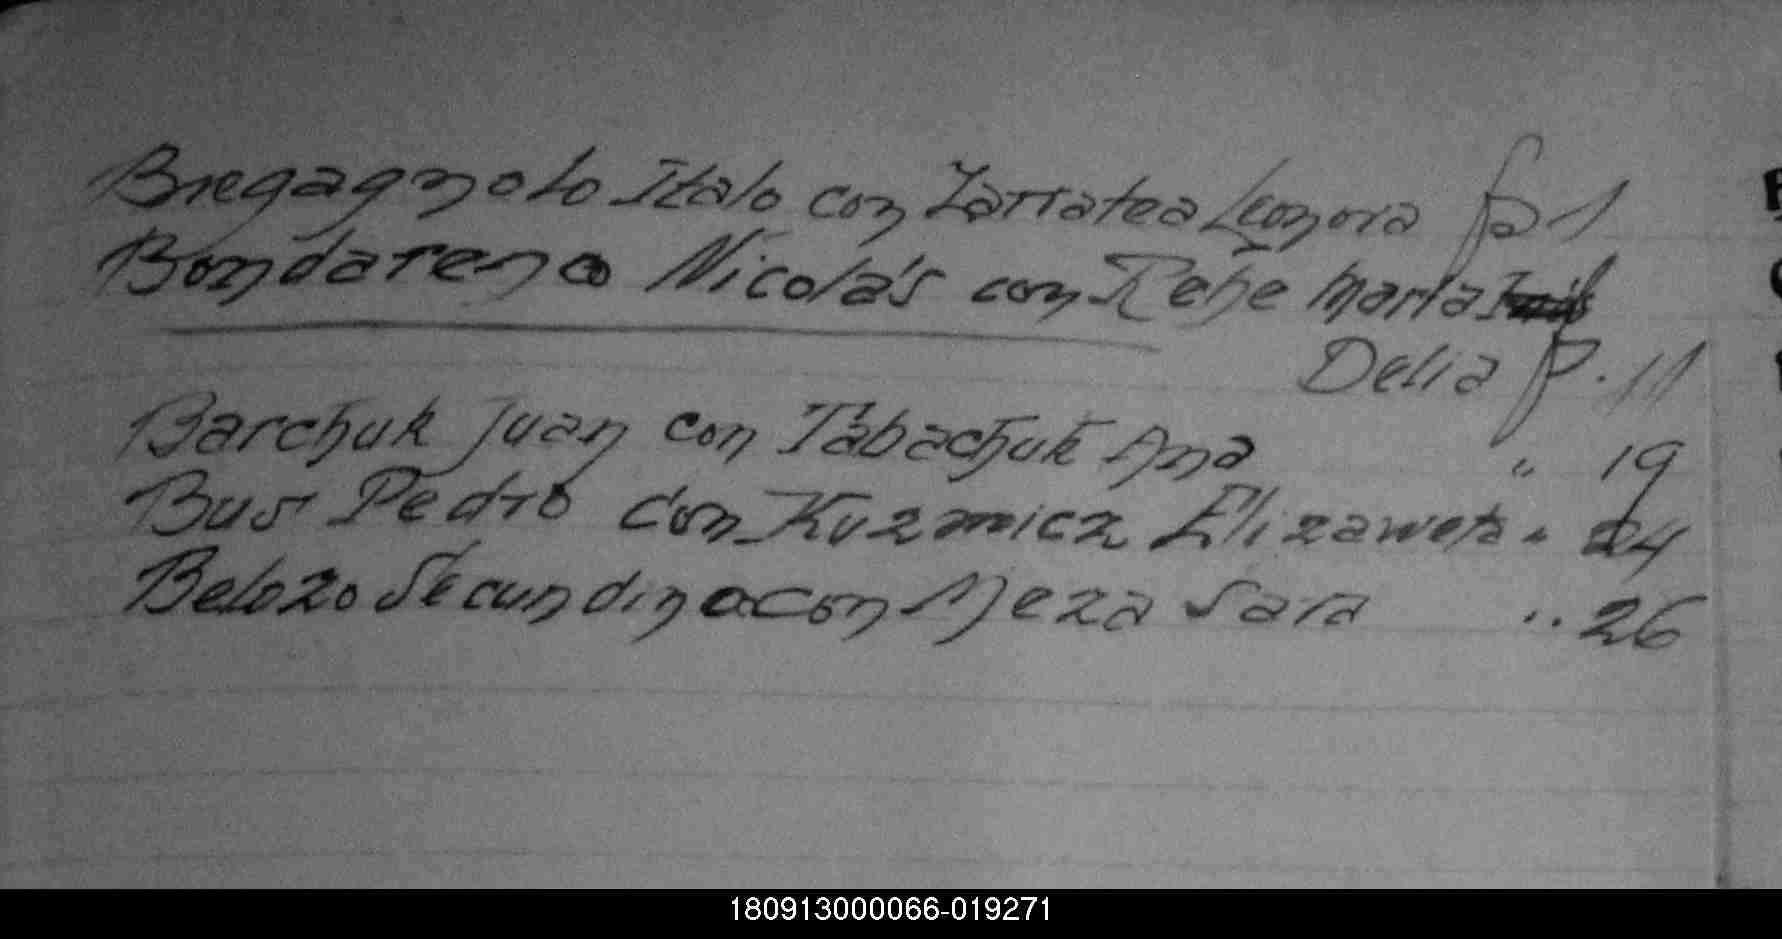 Bregagnolo Italo con Zarratea Leonora fo 1
Bondareno Nicolás con Rehe Maria
Delia f. 11
Barchuk Juan con Tabachuk Ana " 19
Bus Pedro con Kuzmicz Elizaweta " 24
Belozo Secundino con Meza Sara " 26
180913000066-019271